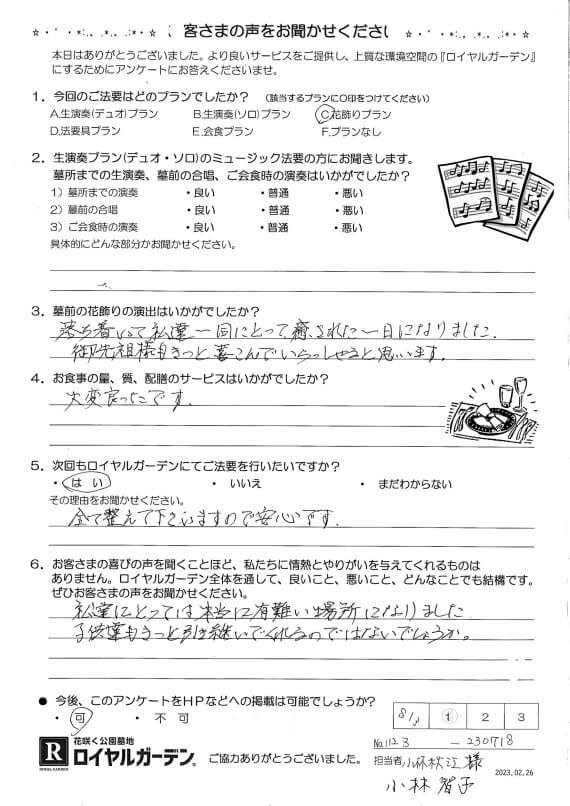 客さまの声をお聞かせくださ
本日はありがとうございました。より良いサービスをご提供し、上質な環境空間の『ロイヤルガーデン』
にするためにアンケートにお答えくださいませ。
1. 今回のご法要はどのプランでしたか？ （該当するプランに○印をつけてください）
A.生演奏(デュオ)プラン B.生演奏(ソロ)プラン C.花飾りプラン
D.法要具プラン E.会食プラン F.プランなし
2. 生演奏プラン(デュオ・ソロ)のミュージック法要の方にお聞きします。
墓所までの生演奏、墓前の合唱、ご会食時の演奏はいかがでしたか？
1）墓所までの演奏 ・良い ・普通 ・悪い
2）墓前の合唱 ・良い ・普通 ・悪い
3）ご会食時の演奏 ・良い ・普通 ・悪い
具体的にどんな部分かお聞かせください。
3. 墓前の花飾りの演出はいかがでしたか？
落ち着いて私達一同にとって、癒された一日になりました。
御先祖様もきっと喜こんでいらっしゃると思います。
4. お食事の量、質、配膳のサービスはいかがでしたか？
大変良ったです。
5. 次回もロイヤルガーデンにてご法要を行いたいですか？
・ はい ・ いいえ ・ まだわからない
その理由をお聞かせください。
全て整えて下さいますので安心です。
6. お客さまの喜びの声を聞くことほど、私たちに情熱とやりがいを与えてくれるものは
ありません。ロイヤルガーデン全体を通して、良いこと、悪いこと、どんなことでも結構です。
ぜひお客さまの声をお聞かせください。
私達にとっては本当に有難い場所になりました
子供達もきっと引き継いでくれるのではないでしょうか。
● 今後、このアンケートをHPなどへの掲載は可能でしょうか？
・ 可 ・ 不 可
8/1 1 2 3
No.1123 - 230718
R ROYAL GARDEN 花咲く公園墓地
ロイヤルガーデン。 ご協力ありがとうございました。
担当者 小林秋江様
2023.02.26
小林智子